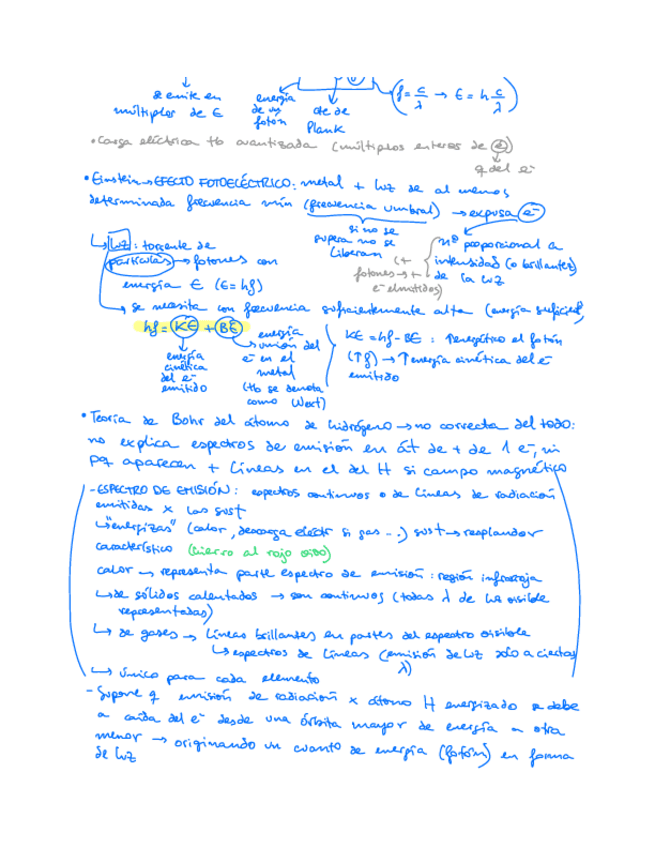 ↓ se emite en múltiplos de E
energía de un fotón
cte de Plank
(f = c/λ → E = h c/λ)
• Carga eléctrica tb cuantizada (múltiplos enteros de e)
q del e⁻
• Einstein → EFECTO FOTOELÉCTRICO: metal + luz de al menos
determinada frecuencia mín (frecuencia umbral) → expulsa e⁻
si no se supera no se liberan
nº proporcional a intensidad (o brillantez) de la luz
(+ fotones → + e⁻ elmitidos)
↳ luz: torrente de
partículas → fotones con
energía E (E = hf)
→ se necesita con frecuencia suficientemente alta (energía suficiente)
hf = KE + BE
energía cinética del e⁻ emitido
energía unión del e⁻ en el metal
(tb se denota como Wext)
KE = hf - BE : ↑energético el fotón
(↑f) → ↑energía cinética del e⁻
emitido
• Teoría de Bohr del átomo de hidrógeno → no correcta del todo:
no explica espectros de emisión en át de + de 1 e⁻, ni
pq aparecen + líneas en el del H si campo magnético
- ESPECTRO DE EMISIÓN: espectros continuos o de líneas de radiación
emitidas x las sust
↳ "energizas" (calor, descarga eléctr si gas ...) sust → resplandor
característico (hierro al rojo vivo)
calor → representa parte espectro de emisión: región infrarroja
↳ de sólidos calentados → son continuos (todas λ de luz visible
representadas)
↳ de gases → líneas brillantes en partes del espectro visible
↳ espectros de líneas (emisión de luz sólo a ciertas λ)
↳ único para cada elemento
- Supone q emisión de radiación x átomo H energizado se debe
a caída del e⁻ desde una órbita mayor de energía a otra
menor → originando un cuanto de energía (fotón) en forma
de luz